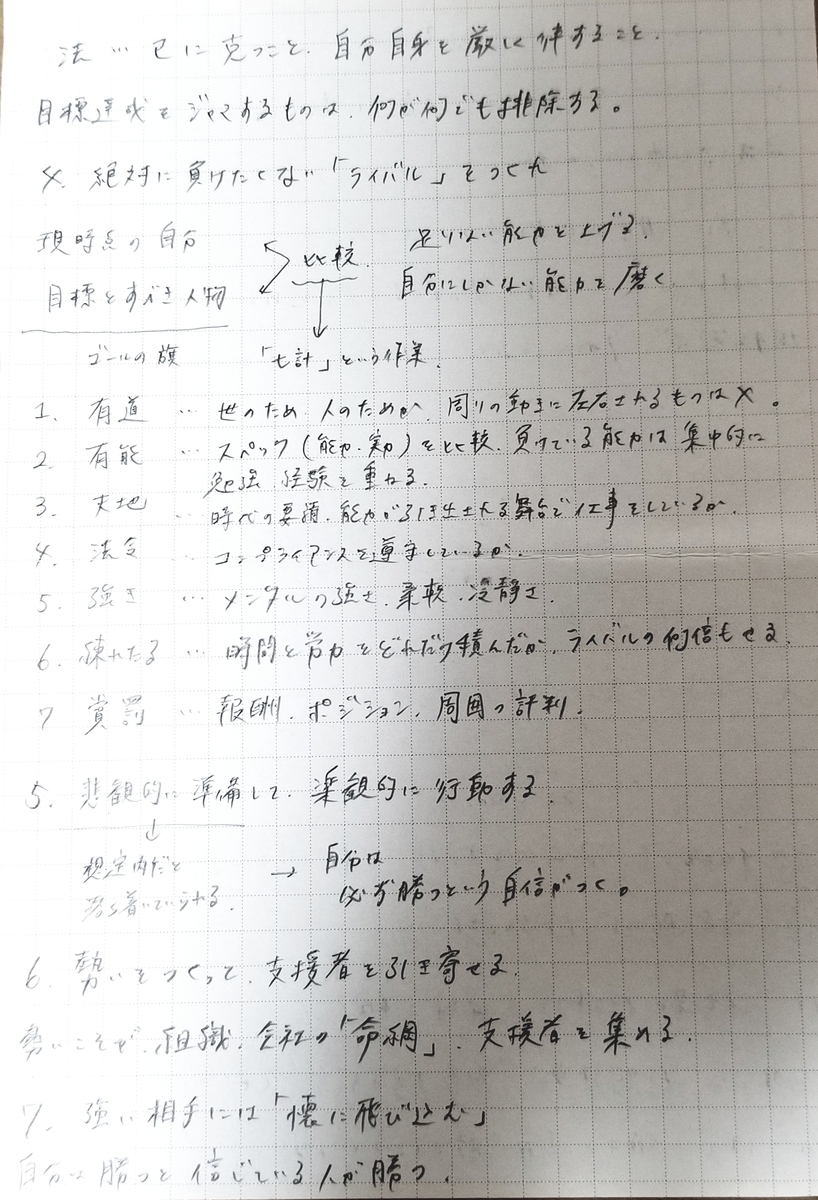 法…己に克つこと、自分自身を厳しく律すること。
目標達成をジャマするものは、何が何でも排除する。
4. 絶対に負けたくない「ライバル」をつくれ
現時点の自分
比較
足りない能力を上げる。
目標とすべき人物
自分にしかない能力を磨く
ゴールの旗
「七計」という作業。
1. 有道 … 世のため人のためか、周りの動きに左右されるものは×。
2. 有能 … スペック(能力・実力)を比較、負けている能力は集中的に
勉強 経験を重ねる。
3. 天地 … 時代の要請、能力が引き出される舞台で仕事をしているか。
4. 法令 … コンプライアンスを遵守しているか。
5. 強さ … メンタルの強さ、柔軟、冷静さ。
6. 練れたる … 時間と労力をどれだけ積んだか、ライバルの何倍もせる。
7 賞罰 … 報酬、ポジション、周囲の評判。
5. 悲観的に準備して、楽観的に行動する。
想定内だと
落ち着いていられる。
→ 自分は
必ず勝つという自信がつく。
6. 勢いをつくって、支援者を引き寄せる。
勢いこそが、組織、会社の「命綱」、支援者を集める。
7. 強い相手には「懐に飛び込む」
自分は勝つと信じている人が勝つ。